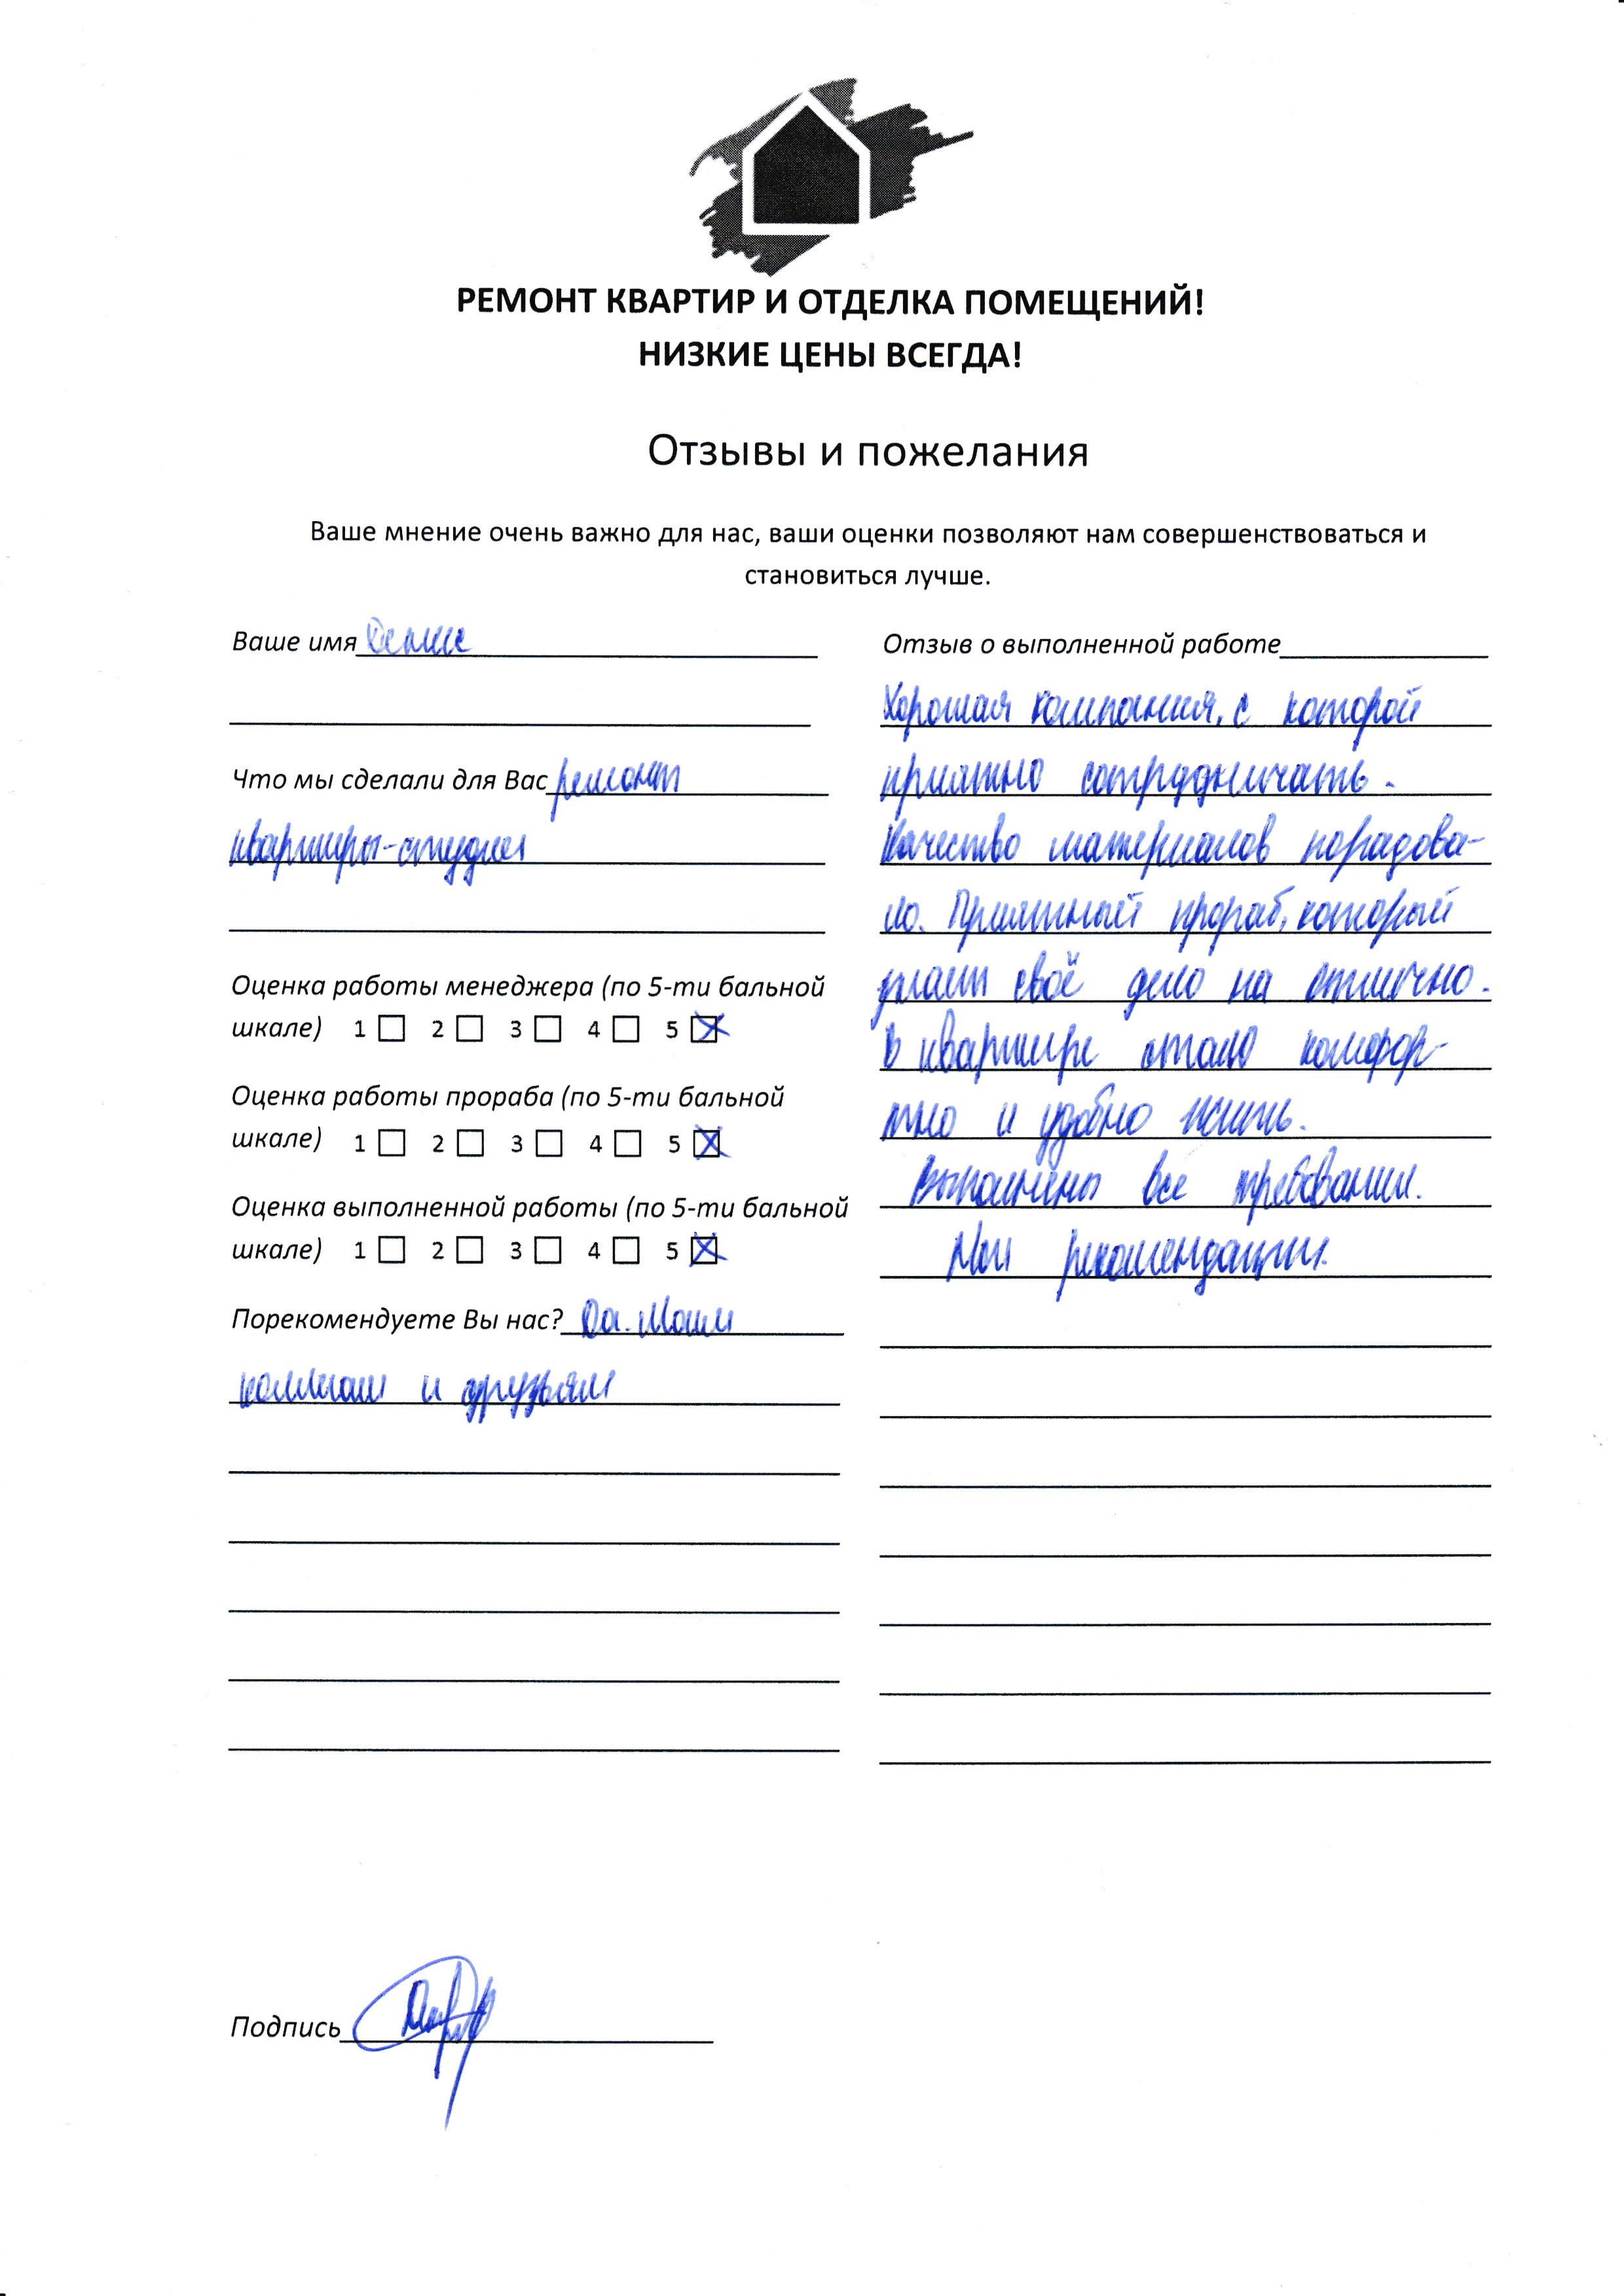 РЕМОНТ КВАРТИР И ОТДЕЛКА ПОМЕЩЕНИЙ!
НИЗКИЕ ЦЕНЫ ВСЕГДА!
Отзывы и пожелания
Ваше мнение очень важно для нас, ваши оценки позволяют нам совершенствоваться и
становиться лучше.
Ваше имя Денис
Что мы сделали для Вас ремонт
квартиры-студии
Оценка работы менеджера (по 5-ти бальной
шкале) 1 2 3 4 5
Оценка работы прораба (по 5-ти бальной
шкале) 1 2 3 4 5
Оценка выполненной работы (по 5-ти бальной
шкале) 1 2 3 4 5
Порекомендуете Вы нас? Да. Моим
коллегам и друзьям
Отзыв о выполненной работе
Хорошая компания, с которой
приятно сотрудничать.
Качество материалов порадова-
ло. Приятный прораб, который
делает своё дело на отлично.
В квартире стало комфор-
тно и удобно жить.
Выполнены все требования.
Мои рекомендации.
Подпись